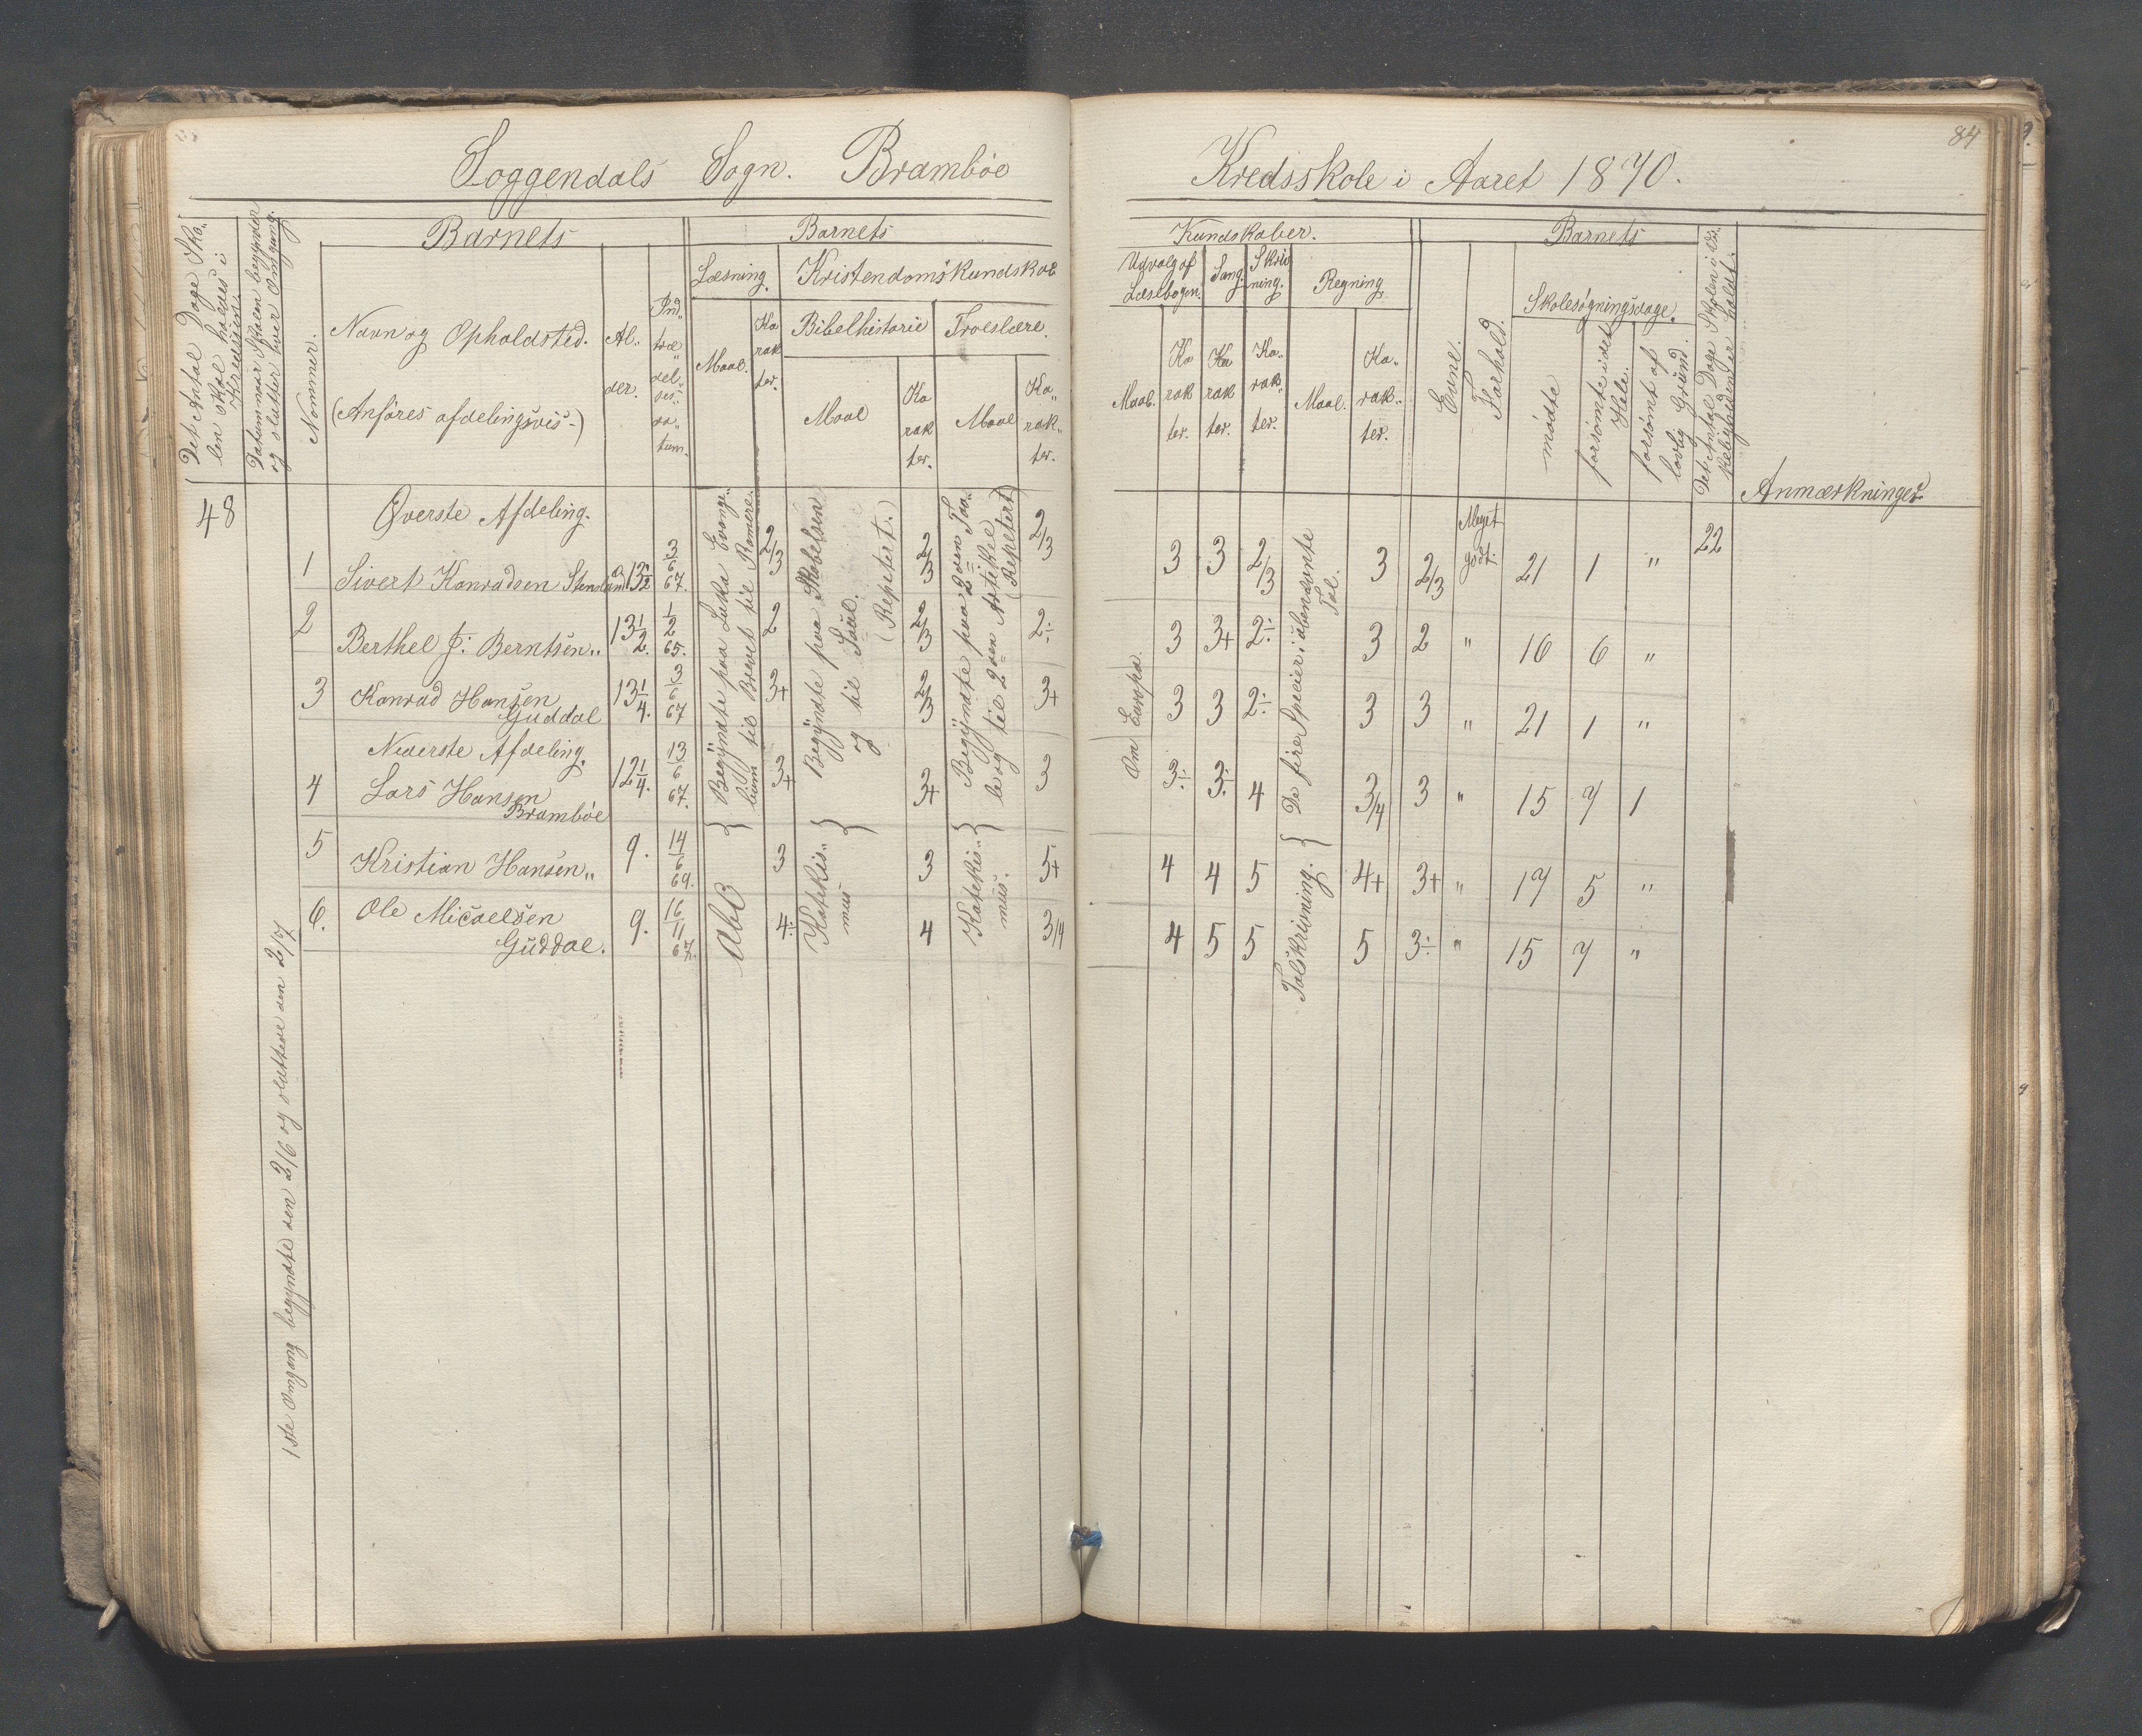 Soggendals Sogn. Brambøe Kredsskole i Aaret 1870.
84
Det Antal Dage Skolen skal holdes i Kredsen.
Datum naar Skolen begynder og slutter hver Omgang.
Nommer.
Barnets
Navn og Opholdsted.
(Anføres afdelingsvis-)
Al-
der.
Ind-
træ-
del-
ses-
da-
tum.
Barnets
Læsning.
Maal.
Ka
rak
ter.
Kristendomskundskab
Bibelhistorie
Maal
Ka
rak
ter.
Troeslære.
Maal
Ka-
rak-
ter.
Kundskaber.
Udvalg af
Læsebogen.
Maal.
Ka
rak
ter.
Sang.
Ka
rak
ter.
Skriv
ning.
Ka-
rak-
ter.
Regning
Maal.
Ka-
rak-
ter.
Barnets
Evne.
Forhold.
Skolesøgningsdage.
mødte
forsømte i det Hele.
forsømt af lovlig Grund.
Det Antal Dage Skolen i Virkeligheden er holdt.
Anmærkninger.
48
1ste Omgang begyndte den 2/6 og sluttede den 2/7
Øverste Afdeling.
1 Sivert Konradsen 13 1/2 3/6 67. 2/3 2/3 2/3 3 3 2/3 3 2/3 Meget godt. 21 1 " 22
2 Berthel J: Berntsen " 13 1/2. 1/2 65. 2 2/3 2÷ 3 3+ 2÷ 3 2 " 16 6 "
3 Konrad Hansen Guddal 13 1/4. 3/6 67 3+ 2/3 3+ 3 3 2÷ 3 3 " 21 1 "
Nederste Afdeling.
4 Lars Hansen Brambøe 12 1/4. 13/6 67. 3+ 3+ 3 3÷ 3÷ 4 3/4 3 " 15 7 1
5 Kristian Hansen " 9. 14/6 69. 3 3 5+ 4 4 5 4+ 3+ " 17 5 "
6. Ole Micaelsen Guddal. 9. 16/11 67. 4÷ 4 3/4 4 5 5 5 3÷ " 15 7 "
Begyndte paa Luka Evange-
lium til Brevet til Romere.
AbC
Begyndte paa Skabelsen
og til Saul.
(Repetert.)
Katekis-
mus
Begyndte paa 2den Troesartikel
(Repetert)
Katekis-
mus.
Om Europa.
De fire Specier i ubenævnte
Tal.
Talskrivning.